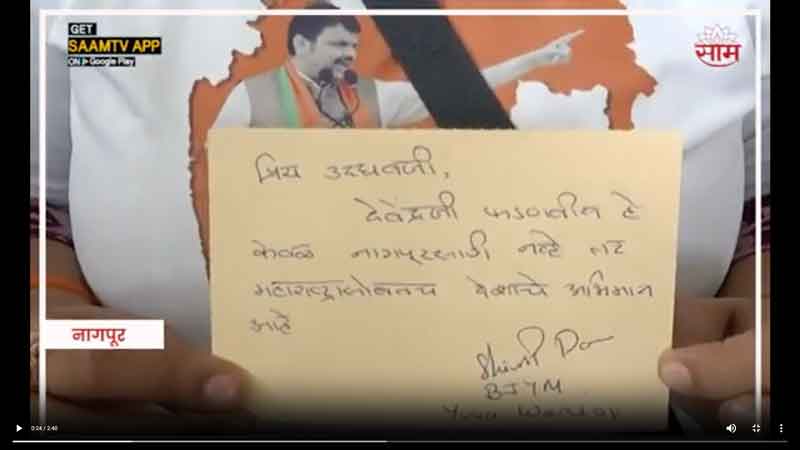 GET
SAAMTV APP
ON Google Play
साम
प्रिय उद्धवजी,
देवेंद्रजी फडणवीस हे
केवळ नागपूरसाठी नव्हे तर
महाराष्ट्रासोबतच देशाचे अभिमान
आहे
BJYM
Yuva Warrior
नागपूर
0:24 / 2:40